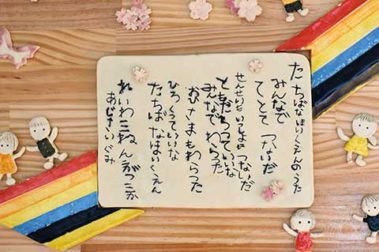 たちばなほいくえんのうた
みんなで
てとて つないだ
せんせいと いっしょに つないだ
ともだちっていいな
みんなでわらった
おひさまもわらった
ひろくっていいな
たちばなほいくえん
れいわ三ねん
あじさいぐみ